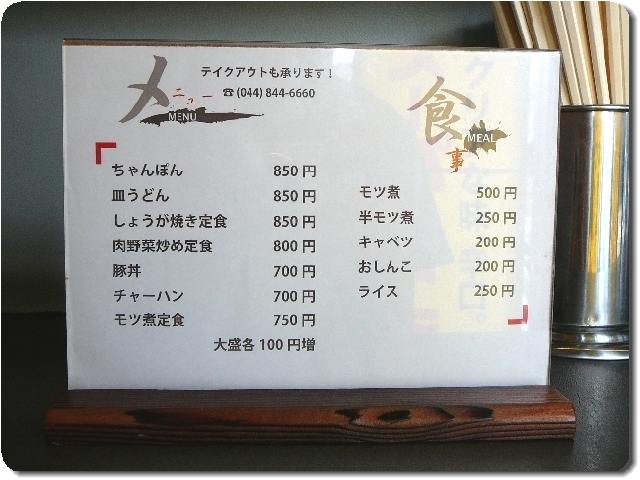 メニュー
MENU
テイクアウトも承ります！
☎(044) 844-6660
食事
MEAL
ちゃんぽん 850円
皿うどん 850円
しょうが焼き定食 850円
肉野菜炒め定食 800円
豚丼 700円
チャーハン 700円
モツ煮定食 750円
大盛各100円増
モツ煮 500円
半モツ煮 250円
キャベツ 200円
おしんこ 200円
ライス 250円